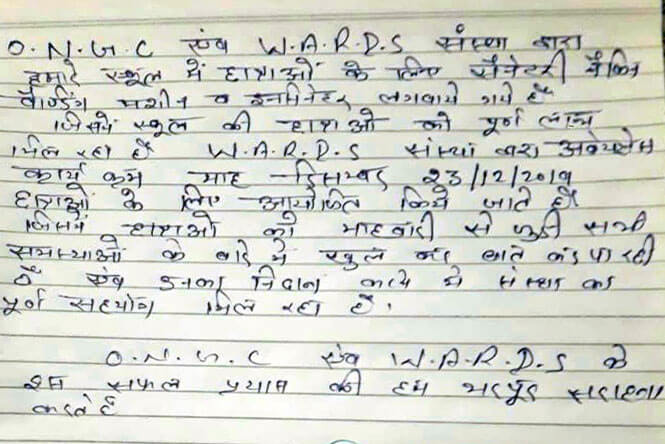 O.N.G.C एंव W.A.R.D.S संस्था द्वारा
हमारे स्कूल में छात्राओं के लिए सैनेटरी नैकिन
वैण्डिंग मशीन व इनसिनेटर लगवाये गये हैं
जिसमें स्कूल की छात्राओ को पूर्ण लाभ
मिल रहा है W.A.R.D.S संस्था द्वारा अवेयरनेस
कार्य क्रम माह दिसम्बर 23/12/2019
छात्राओं के लिए आयोजित किये जाते हैं
जिसमें छात्राओ को माहवारी से जुडी सभी
समस्याओं के बारे में खुल कर बाते कर पा रही
है एंव उनका निदान करने में संस्था का
पूर्ण सहयोग मिल रहा है.
O.N.G.C एंव W.A.R.D.S के
इस सफल प्रयास की हम भरपूर सराहना
करते हैं